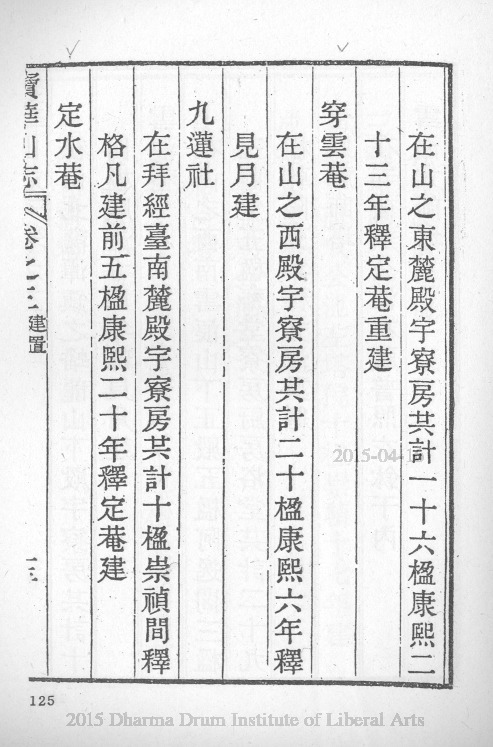 在山之東麓殿宇寮房共計一十六楹康熙二
十三年釋定菴重建
穿雲菴
在山之西殿宇寮房共計二十楹康熙六年釋
見月建
九蓮社
在拜經臺南麓殿宇寮房共計十楹崇禎間釋
格凡建前五楹康熙二十年釋定菴建
定水菴
寶華山志 卷之三 建置
125
2015-04-1
2015 Dharma Drum Institute of Liberal Arts